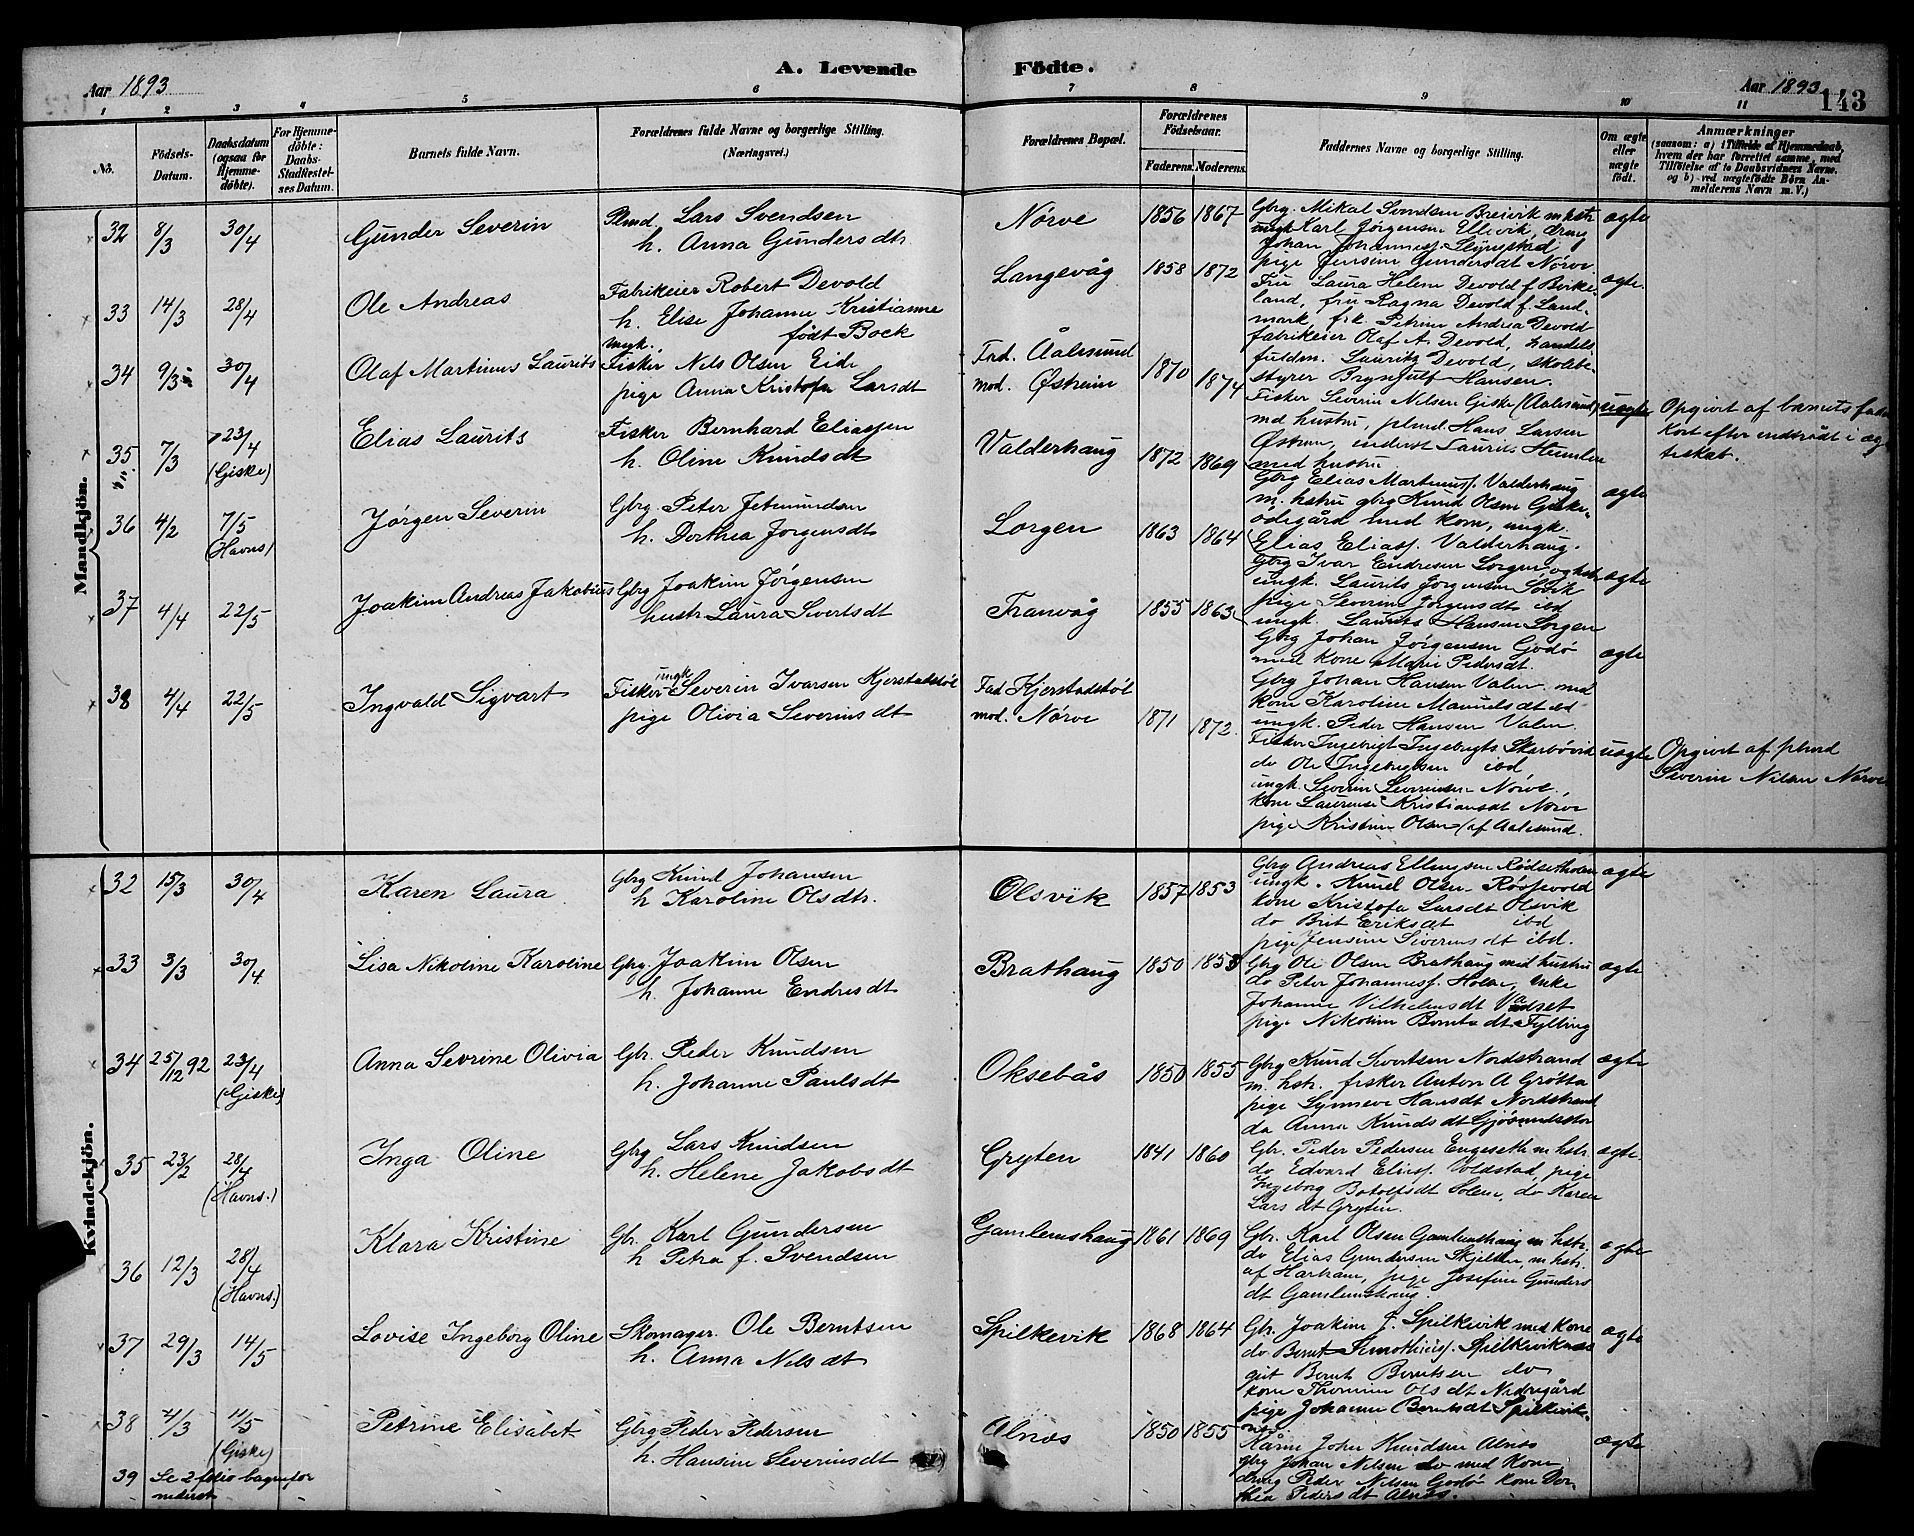 Aar 1893
A. Levende Födte.
Aar 1893
143
1 2 3 4 5 6 7 8 9 10 11
No.
Födsels-Datum.
Daabsdatum (ogsaa for Hjemmedöbte).
For Hjemmedöbte: Daabs-Stadfestelses Datum.
Barnets fulde Navn.
Forældrenes fulde Navne og borgerlige Stilling.
(Næringsvei.)
Forældrenes Bopæl.
Forældrenes Födselsaar.
Faderens. Moderens.
Faddernes Navne og borgerlige Stilling.
Om ægte eller uægte födt.
Anmærkninger
(saasom: a) i Tilfælde af Hjemmedaab, hvem der har forrettet samme, med Tilföielse af to Daabsvidners Navne, og b) ved uægtefödte Börn Anmelderens Navn m. V.)
Mandkjön.
32 8/3 30/4 Gunder Severin
Lars Svendsen
h. Anna Gundersdtr.
Nørve 1856 1867
Gbrg. Mikal Svendsen Breivik m. hstr
ungk Karl Jørgensen Ellevik, dreng
pige Jensine Gundersdt Nørve
ægte
33 14/3 28/4 Ole Andreas
Fabrikeier Robert Devold
h. Elise Johanne Kristianne
født Bock
Langevåg 1858 1872
Fru Laura Helene Devold f. Birke-
land, fru Ragna Devold f. Land-
mark, frk. Petrine Andrea Devold
fabrikeier Olaf A. Devold, handels
fuldm. Lauritz Devold, skolebe-
styrer Brynjulf Hansen.
ægte.
34 9/3 30/4 Olaf Martinus Laurits
ungk.
Fisker Nils Olsen Eide
pige Anna Kristofa Larsdt
Fad. Aalesund
mod. Østrem
1870 1874
Fisker Severin Nilsen Giske (Aalesund)
md hustru, Hans Larsen
Østrem, inderst Laurits Humlen
med hustru
uægte
Opgivet af barnets fader
Kort efter indtrådt i æg
teskab.
35 7/3 23/4 (Giske) Elias Laurits
Fisker Bernhard Eliassen
h. Oline Knudsdt
Valderhaug 1872 1869
Gbrg Elias Martinuss. Valderhaug
m. hstru gbrg Knud Olsen Giske-
ødegård med kone, ungk.
Elias Eliass. Valderhaug.
ægte
36 4/2 7/5 (Havns) Jørgen Severin
Gbrg Peter Jetmundsen
h. Dorthea Jørgensdt
Sorgen 1863 1864
Gbrg Ivar Endresen Sorgen og hstr
ungk. Laurits Jørgensen Søvik
pige Severine Jørgensdt ibd
ungk. Laurits Hansen Sorgen
ægte
37 4/4 22/5 Joakim Andreas Jakobius
Gbrg Joakim Jørgensen
hustr. Laura Sivertsdt
Tranvåg 1855 1863
Gbrg Johan Jørgensen Godø
med kone Marie Pedersdt.
Gbrg Johan Hansen Valen med
kone Karoline ibd
ungk. Peder Hansen Valen
ægte
38 4/4 22/5 Ingvald Sigvart
ungk
Fisker Severin Ivarsen Kjerstadstøl
pige Olivia Severinsdt
Fad Kjerstadstøl
mod. Nørve
1871 1872.
Fisker Ingebrigt Ingebrigts Skarbøvik
do Ole Ingebrigtsen ibd
ungk. Severin Severinsen Nørve,
kone Laurense Kristiansdt Nørve
pige Kristine Olsen (af Aalesund.
uægte
Opgivet af
Severin Nilsen Nørve
Kvindekjön.
32 15/3 30/4 Karen Laura
gbrg Knud Johansen
h Karoline Olsdtr.
Olsvik 1857 1853
Gbrg Andreas Ellingsen Rødsetholm
ungk. Knud Olsen Røssevold
kone Kristofa Larsdt Olsvik
do Brit Eriksdt ibd
pige Jensine Siverinsdt ibd.
ægte
33 3/3 30/4 Lisa Nikoline Karoline
Gbrg. Joakim Olsen
h. Johanne Endresdt
Brathaug 1850 1858
Gbrg Ole Olsen Brathaug med hustru
do Peter Johanness. Holen, enke
Johanne Vilhelmsdt Vadset
pige Nikoline Berntsdt Fylling
ægte
34 25/12 92 23/4 (Giske) Anna Sevrine Olivia
Gbr. Peder Knudsen
h. Johanne Paulsdt
Oksebås 1850 1855
Gbrg Knud Sivertsen Nordstrand
m. hstr. fisker Anton A Grøtta
pige Synneve Hansdt Nordstrand
do Anna Knudsdt
ægte
35 23/2 28/4 (Havns.) Inga Oline
Gbrg Lars Knudsen
h. Helene Jakobsdt
Gryten 1841 1860
Gbr. Peder Pedersen Engeseth m. hstr.
do Edvard Eliass. Voldstad, pige
Ingeborg Botolfsdt Solem, do Karen
Larsdt Gryten.
ægte
36 12/3 28/4 (Havns.) Klara Kristine
Gbr. Karl Gundersen
h Petra f. Svendsen
Gamlemshaug 1861 1869
Gbr. Karl Olsen Gamlemshaug m hstr.
do Elias Gundersen Skjelten m hstr.
af Harham, pige Josefine Gunders
dt Gamlemshaug.
ægte
37 29/3 14/5 Lovise Ingeborg Oline
Skomager. Ole Berntsen
h. Anna Nilsdt
Spilkevik 1868 1864
Gbr. Joakim J. Spilkevik med kone
do Bernt Spilkevik
gut Bernt Berntsen do
kone Thomine Olsdt Nedregård
pige Johanne Berntsdt Spilkevik-
nes.
ægte
38 4/3 11/5 (Giske) Petrine Elisabet
Gbrg Peder Pedersen
h. Hansine Severinsdt
Alnæs 1850 1855
Kårm Johan Knudsen Alnæs
gbrg Johan Nilsen do med kone
dreng Peder Nilsen Godø kone Dor-
thea Pedersdt Alnæs.
ægte
39 Se 2 folio bagenfor
nederst